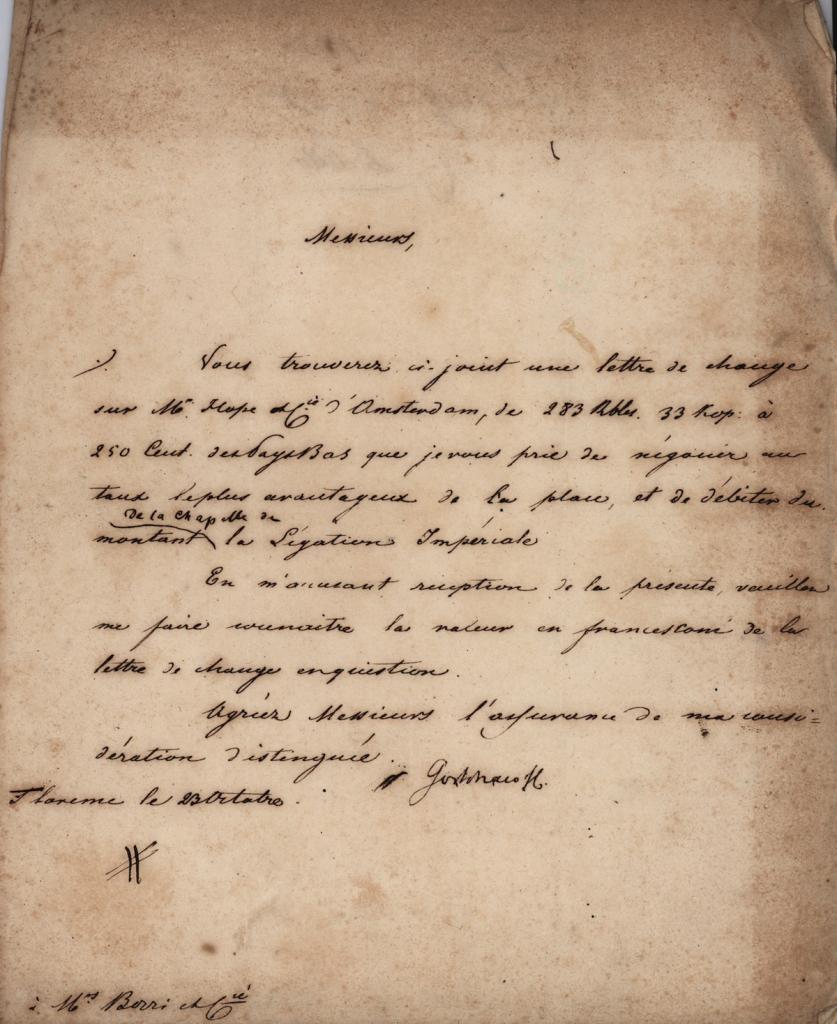 Messieurs,
Vous trouverez ci-joint une lettre de change
sur Mrs Hope et Cie d'Amsterdam, de 283 Rbls. 33 Kop: à
250 Cent. des Pays Bas que je vous prie de négocier au
taux le plus avantageux de la place, et de débiter du
de la chapelle de
montant la Légation Impériale
En m'accusant réception de la présente, veuillez
me faire connaitre la valeur en francesconi de la
lettre de change en question.
Agréez Messieurs l'assurance de ma consi=
dération distinguée.
Florence le 23 Octobre.
à Mrs Borri et Cie